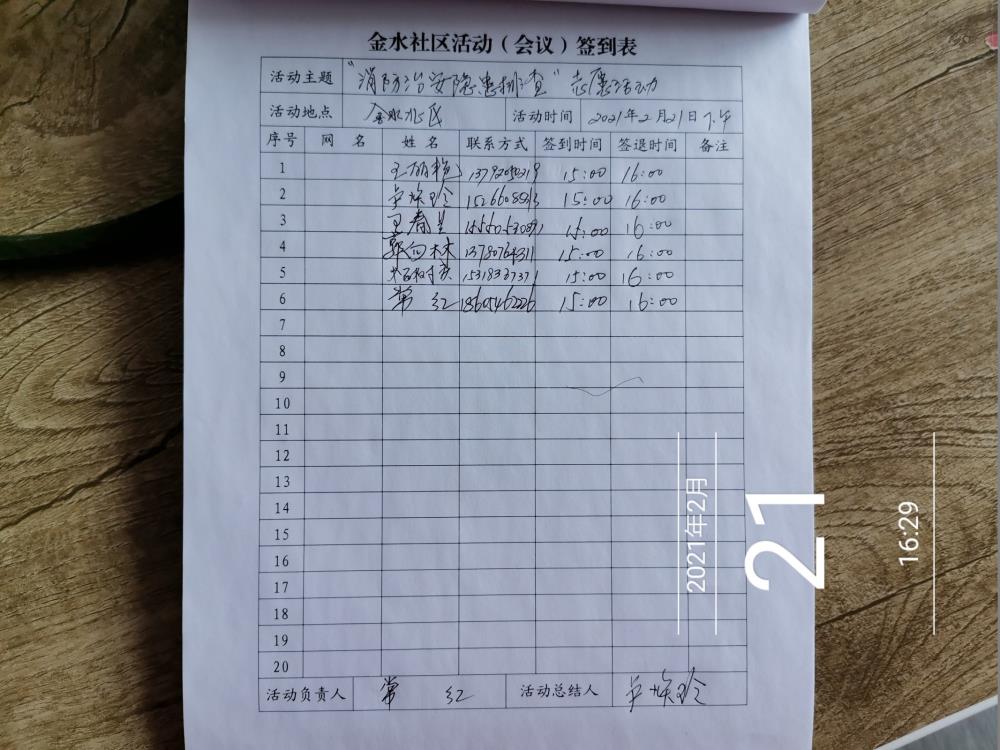 金水社区活动（会议）签到表
活动主题 “消防治安隐患排查”志愿活动
活动地点 金水社区 活动时间 2021年2月21日下午
序号 网 名 姓 名 联系方式 签到时间 签退时间 备注
1 15:00 16:00
2 15:00 16:00
3 王春兰 15:00 16:00
4 郭向林 15:00 16:00
5 15:00 16:00
6 常 红 18605462226 15:00 16:00
7
8
9
10
11
12
13
14
15
16
17
18
19
20
活动负责人 常 红 活动总结人
2021年2月
21
16:29